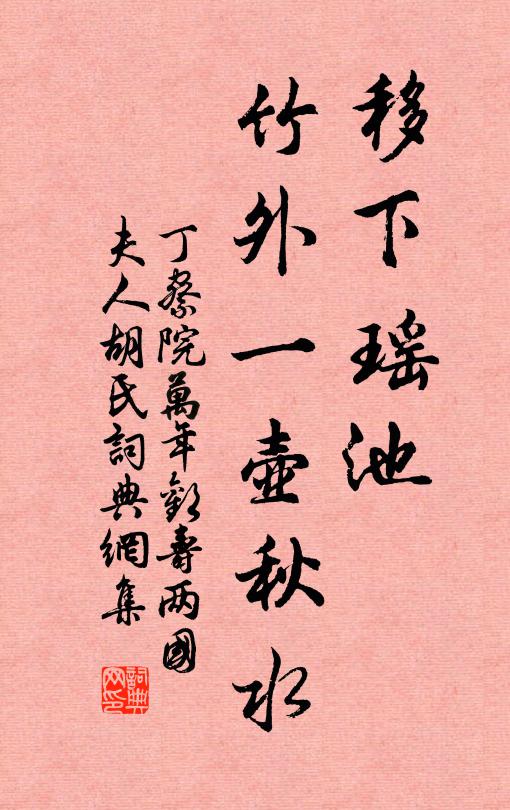 移下瑶池
竹外一壺秋水
丁察院萬年歡壽两國
夫人胡氏詞典網集
詞典
网印